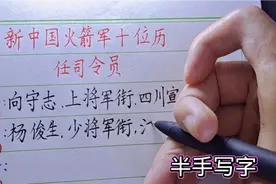 新中国火箭军十位历
任司令员
:向守志,上将军衔,四川宣
:杨俊生,少将军衔,
半手写字